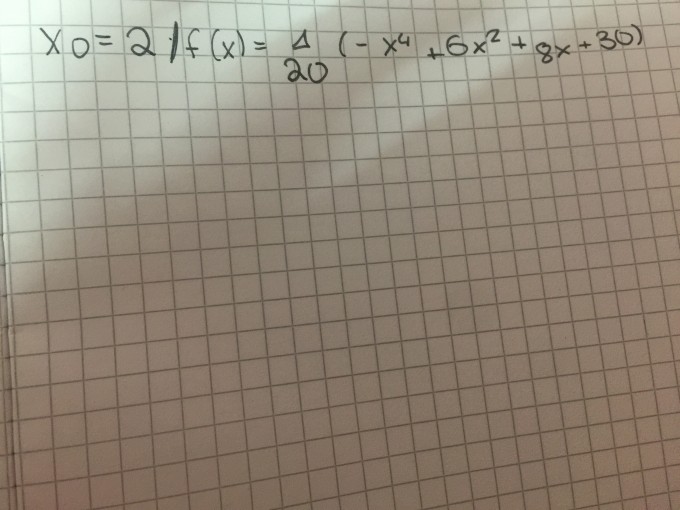 x₀ = 2 / f(x) = 1/20 (- x⁴ + 6x² + 8x + 30)